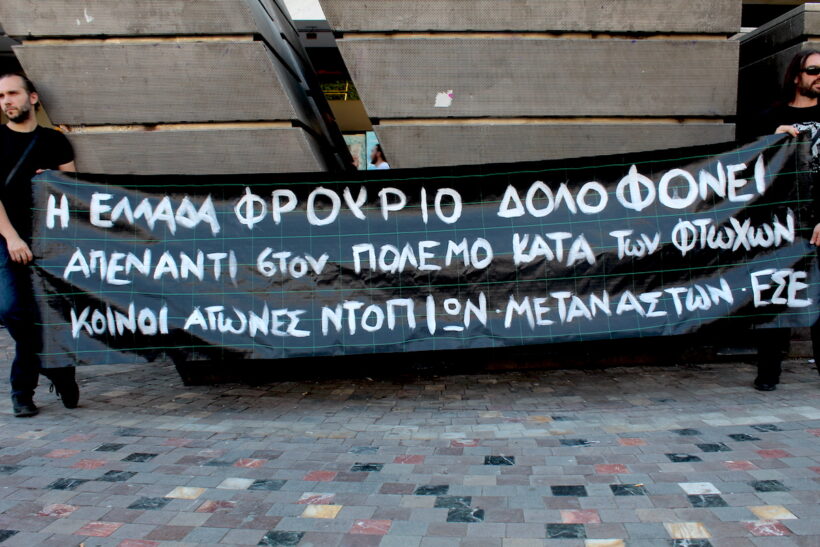 Η ΕΛΛΑΔΑ ΦΡΟΥΡΙΟ ΔΟΛΟΦΟΝΕΙ
ΑΠΕΝΑΝΤΙ στον ΠΟΛΕΜΟ ΚΑΤΑ των ΦΤωΧΩΝ
ΚΟΙΝΟΙ ΑΓΩΝΕΣ ΝΤΟΠΙΩΝ · ΜΕΤΑΝΑΣΤΩΝ · ΕΣΕ